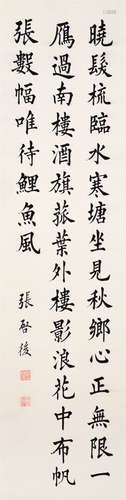 曉髮梳臨水寒塘坐見秋鄉心正無限一
鴈過南樓酒旗菰葉外樓影浪花中布帆
張數幅唯待鯉魚風
張啓後